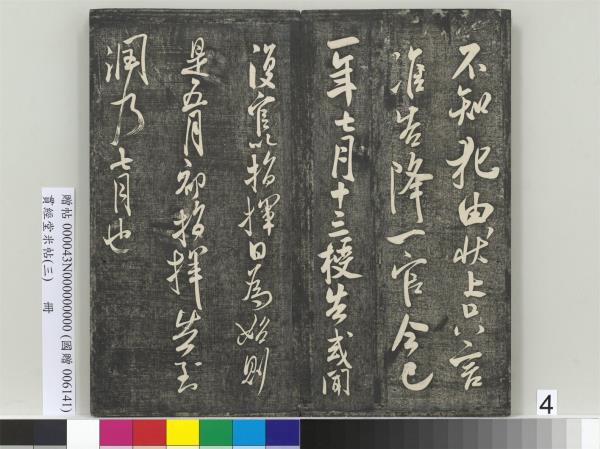 不知犯由状上只言
准告降一官今已
一年七月十三授告或聞
復官以指揮日為始則
是五月初指揮告到
潤乃七月也
贈帖 000043N000000000 (國贈 006141)
貫經堂米帖(三) 冊
4